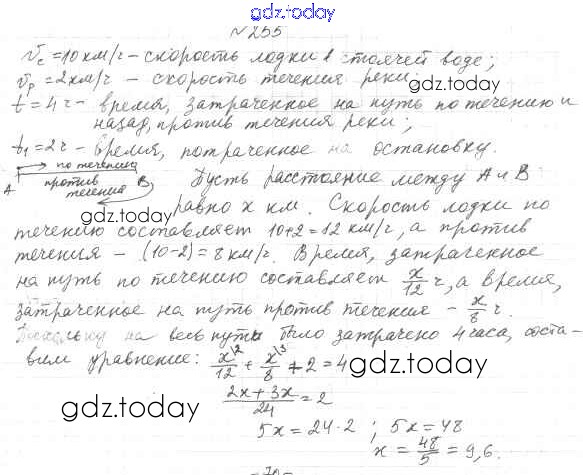 gdz.today
№255
Vс = 10 км/ч - скорость лодки в стоячей воде;
Vр = 2 км/ч - скорость течения реки;
gdz.today
t = 4 ч - время, затраченное на путь по течению и
назад, против течения реки;
t₁ = 2 ч - время, потраченное на остановку.
по течению
A против B
течения
Пусть расстояние между А и В
gdz.today
равно x км. Скорость лодки по
течению составляет 10+2=12 км/ч, а против
течения - (10-2)=8 км/ч. Время, затраченное
на путь по течению составляет x/12 ч, а время,
затраченное на путь против течения - x/8 ч.
Поскольку на весь путь было затрачено 4 часа, соста-
вим уравнение: x\2/12 + x\3/8 + 2 = 4
gdz.today
(2x+3x)/24 = 2
gdz.today
5x = 24·2 ; 5x = 48
x = 48/5 = 9,6.